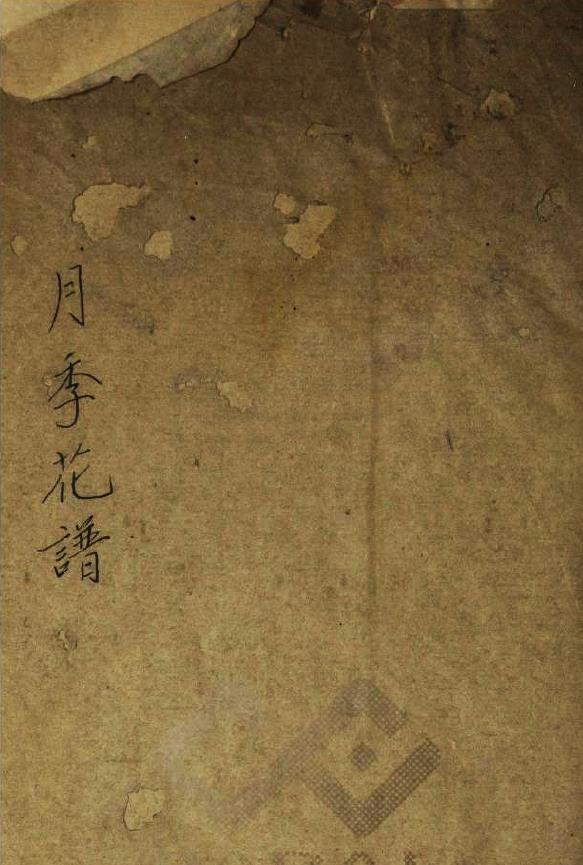 月季花譜